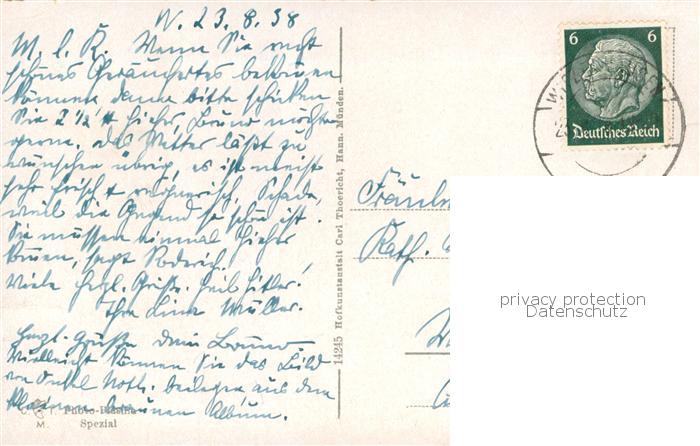 W. 23. 8. 38
M. l. K. Wenn Sie recht
schönes Geräuchertes bekommen
können dann bitte schicken
Sie 2 ½ ℔ hierher, Bruno möchte
gerne. Das Wetter läßt zu
wünschen übrig, es ist meist
sehr frisch & regnerisch, Schade,
weil die Gegend so schön ist.
Sie müssen einmal hierher
kommen, sagt
Viele herzl. Grüße. Heil Hitler!
Ihre Lina Müller.
Herzl. Grüße dein Bruno
Vielleicht können Sie das Bild
von Onkel beilegen aus dem
kleinen braunen Album.
Photo-
M. Spezial
14245 Hofkunstanstalt Carl Thoericht, Hann. Münden.
6 6
Deutsches Reich
Fräulein
Kath.
privacy protection
Datenschutz